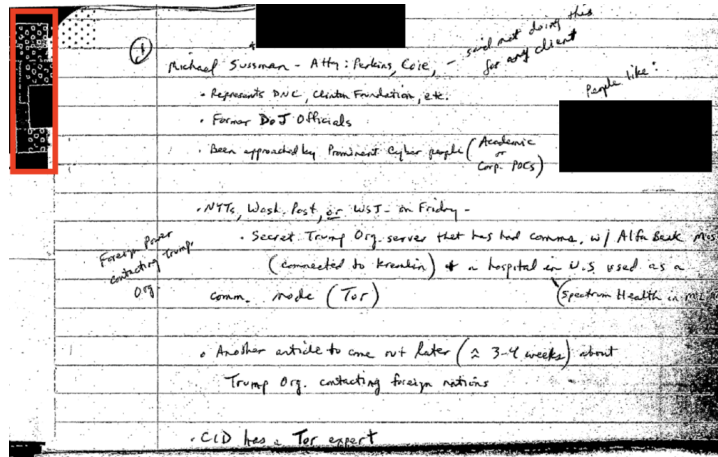 ① Michael Sussman - Atty: Perkins, Coie, - said not doing this
for any client
• Represents DNC, Clinton Foundation, etc.
People like:
• Former DoJ Officials
• Been approached by Prominent Cyber people (Academic
or
Corp. POCs)
• NYTs, Wash. Post, or WSJ - on Friday -
• Secret Trump Org. server that has had comms. w/ Alfa Bank
Foreign Power
contacting Trump
Org.
(connected to Kremlin) + a hospital in U.S. used as a
comm. node (Tor)
(Spectrum Health in
• Another article to come out later (≈ 3-4 weeks) about
Trump Org. contacting foreign nations
• CID has a Tor expert